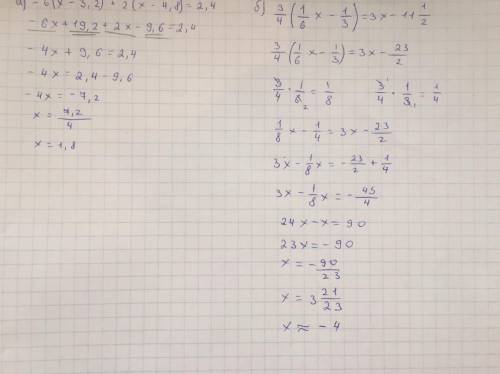 а) -6(x-3,2)+2(x-4,8)=2,4
-6x+19,2+2x-9,6=2,4
-4x+9,6=2,4
-4x=2,4-9,6
-4x=-7,2
x=7,2/4
x=1,8
б) 3/4(1/6x-1/3)=3x-11 1/2
3/4(1/6x-1/3)=3x-23/2
3/4·1/6 2=1/8 3/4·1/3 1=1/4
1/8x-1/4=3x-23/2
3x-1/8x=-23/2+1/4
3x-1/8x=-45/4
24x-x=90
23x=-90
x=-90/23
x=3 21/23
x≈-4